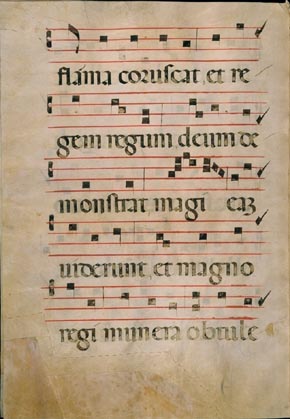 flāma coruscat, et re
gem regum deum de
monstrat magi eaꝫ
uiderunt, et magno
regi munera obtule